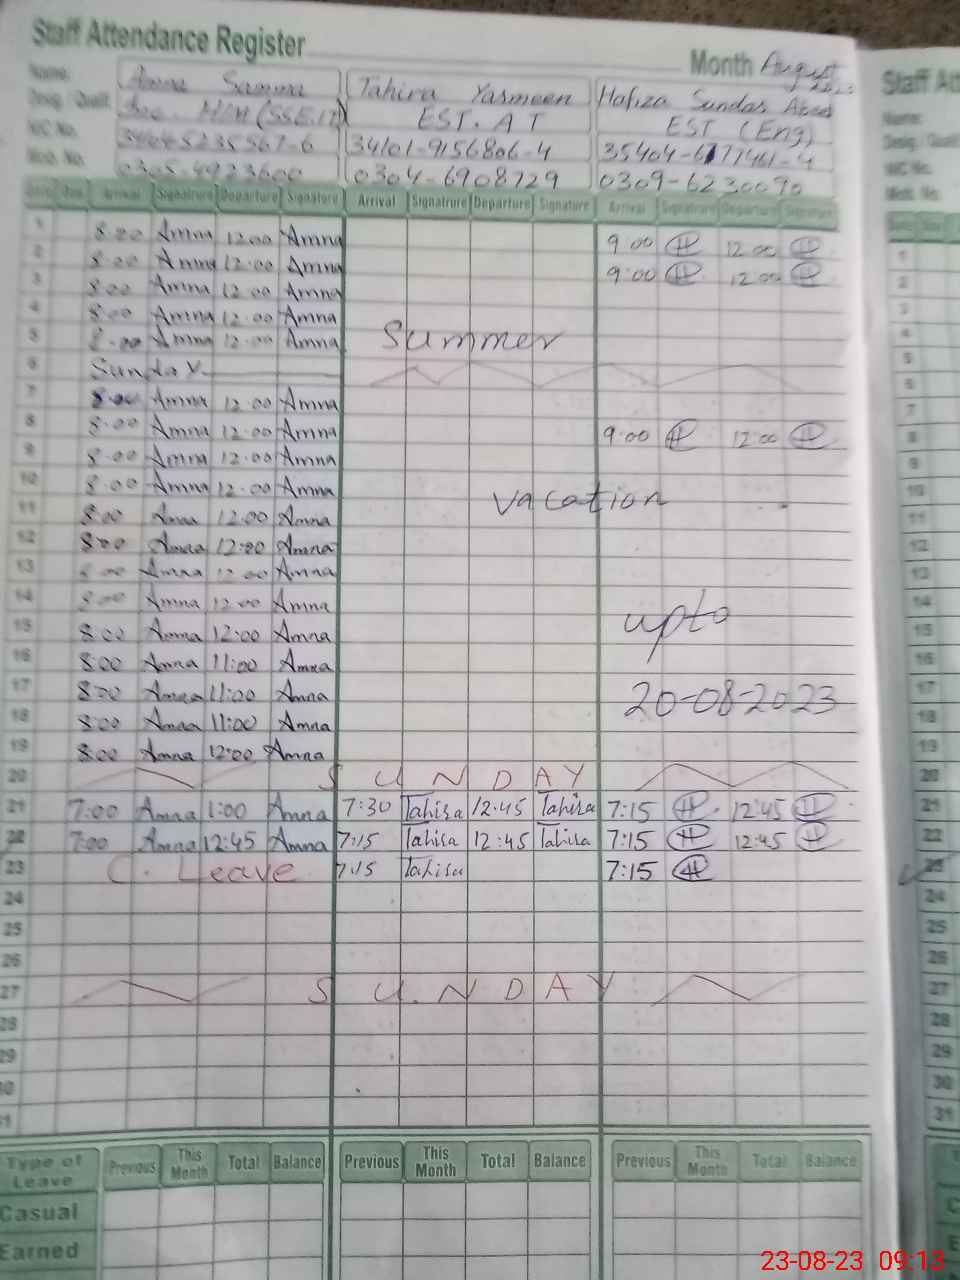 Staff Attendance Register
Month August
Staff Att
Name: Amna Samma Tahira Yasmeen Hafiza Sundas Abad
Desig / Qualif: H/M (SSE.IT) EST. A T EST (Eng)
N/C No. 34045235567-6 34101-9156806-4 35404-6177461-4
Mob. No. 0305-4923600 0304-6908729 0309-6230090
Arrival Signatrure Departure Signature Arrival Signatrure Departure Signature Arrival Signatrure Departure Signature
1 8.00 Amna 12.00 Amna 9:00 H 12.00 H
2 8.00 Amna 12.00 Amna 9:00 H 12.00 H
3 8.00 Amna 12.00 Amna
4 8.00 Amna 12.00 Amna
5 8.00 Amna 12.00 Amna Summer
6 Sunday
7 8.00 Amna 12.00 Amna
8 8.00 Amna 12.00 Amna 9:00 H 12:00 H
9 8.00 Amna 12.00 Amna
10 8.00 Amna 12.00 Amna vacation
11 8.00 Amna 12.00 Amna
12 8:00 Amna 12:00 Amna
13 8.00 Amna 12.00 Amna
14 8:00 Amna 12.00 Amna upto
15 8:00 Amna 12:00 Amna
16 8:00 Amna 11:00 Amna
17 8:00 Amna 11:00 Amna 20-08-2023
18 8:00 Amna 11:00 Amna
19 8:00 Amna 12:00 Amna
20 SUNDAY
21 7:00 Amna 1:00 Amna 7:30 Tahira 12:45 Tahira 7:15 H 12:45 H
22 7:00 Amna 12:45 Amna 7:15 Tahira 12:45 Tahira 7:15 H 12:45 H
23 C. Leave 7:15 Tahira 7:15 H
24
25
26
27 SUNDAY
28
29
30
31
Type of Leave Previous This Month Total Balance Previous This Month Total Balance Previous This Month Total Balance
Casual
Earned
23-08-23 09:13